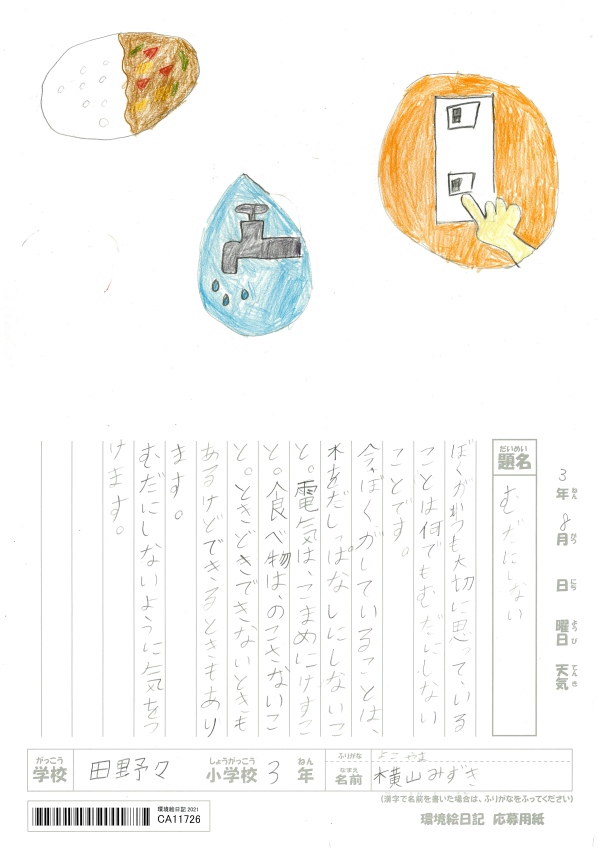 3年 8月 日 曜日 天気
ねん がつ にち ようび てんき
だいめい
題名
むだにしない
ぼくがいつも大切に思っている
ことは何でもむだにしない
ことです。
今ぼくがしていることは、
水をだしっぱなしにしないこ
と。電気は、こまめにけすこ
と。食べ物は、のこさないこ
と。ときどきできないときも
あるけどできるときもあり
ます。
むだにしないように気をつ
けます。
がっこう しょうがっこう ねん
学校 田野々 小学校 3 年
ふりがな よこやま
なまえ
名前 横山みずき
(漢字で名前を書いた場合は、ふりがなをふってください)
環境絵日記 2021
CA11726
環境絵日記 応募用紙